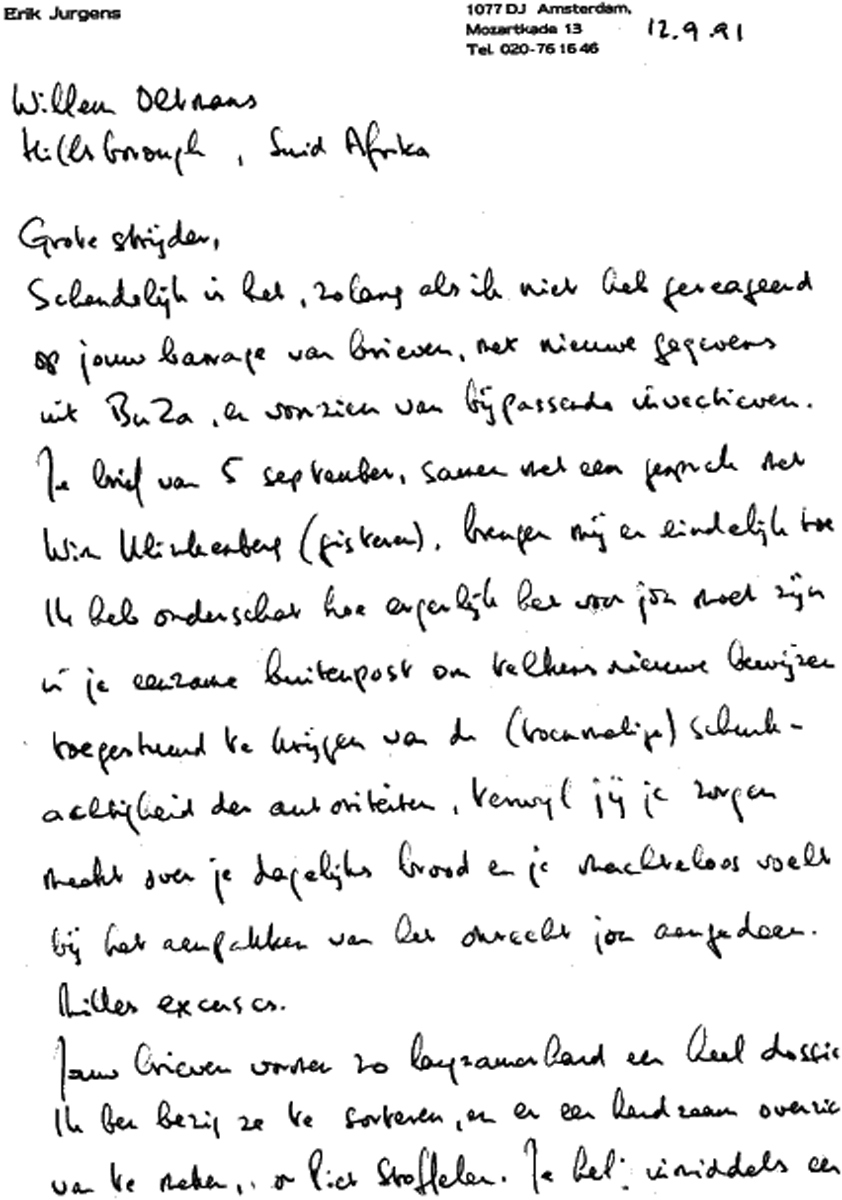 Erik Jurgens
1077 DJ Amsterdam,
Mozartkade 13
Tel. 020-76 16 46
12.9.91
Willem Oltmans
Hillsborough, Suid Afrika
Grote strijder,
Schandelijk is het, zolang als ik niet heb gereageerd
op jouw barrage van brieven, met nieuwe gegevens
uit BuZa, en voorzien van bijpassende invectieven.
Je brief van 5 september, samen met een gesprek met
Wim Klinkenberg (gisteren), brengen mij er eindelijk toe
Ik heb onderschat hoe ergerlijk het voor jou moet zijn
in je eenzame buitenpost om telkens nieuwe bewijzen
toegestuurd te krijgen van de (toenmalige) schurk-
achtigheid der autoriteiten, terwijl jij je zorgen
maakt over je dagelijks brood en je machteloos voelt
bij het aanpakken van het onrecht jou aangedaan.
Milles excuses.
Jouw brieven vormen zo langzamerhand een heel dossie
Ik ben bezig ze te sorteren, en er een handzaam overzic
van te maken, Piet Stoffelen. Je hebt inmiddels een